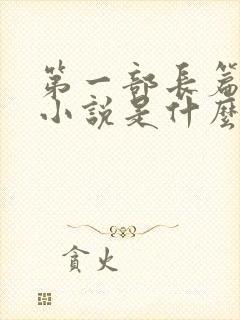 第一部長篇
小說是什麼
貪火